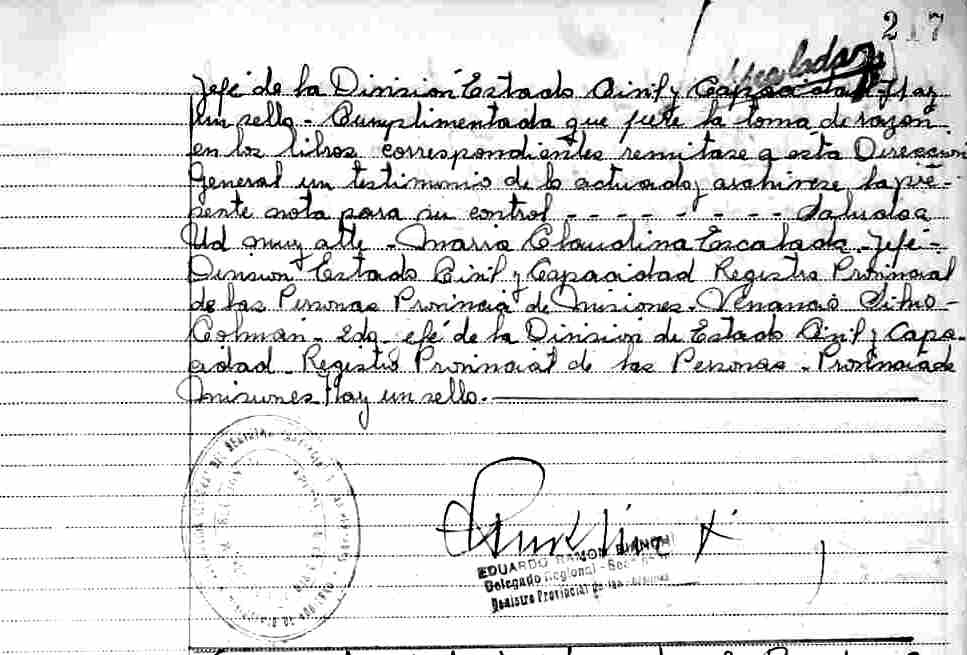 217
Jefe de la Division Estado Civil y Capacidad - Hay
Un sello - Cumplimentada que fuere la toma de razon
en los libros correspondientes remitase a esta Direccion
General un testimonio de lo actuado y archivese la pre-
sente nota para su control - - - - - - - - Saluda a
Ud muy atte - Maria Claudina Escalada - Jefe -
Division Estado Civil y Capacidad Registro Provincial
de las Personas Provincia de Misiones - Venancio Silvio -
Colman - 2do - efe de la Division de Estado Civil y Capa-
cidad - Registro Provincial de las Personas - Provincia de
Misiones Hay un sello.
EDUARDO RAMON BIANCHI
Delegado Regional -
Registro Provincial de las